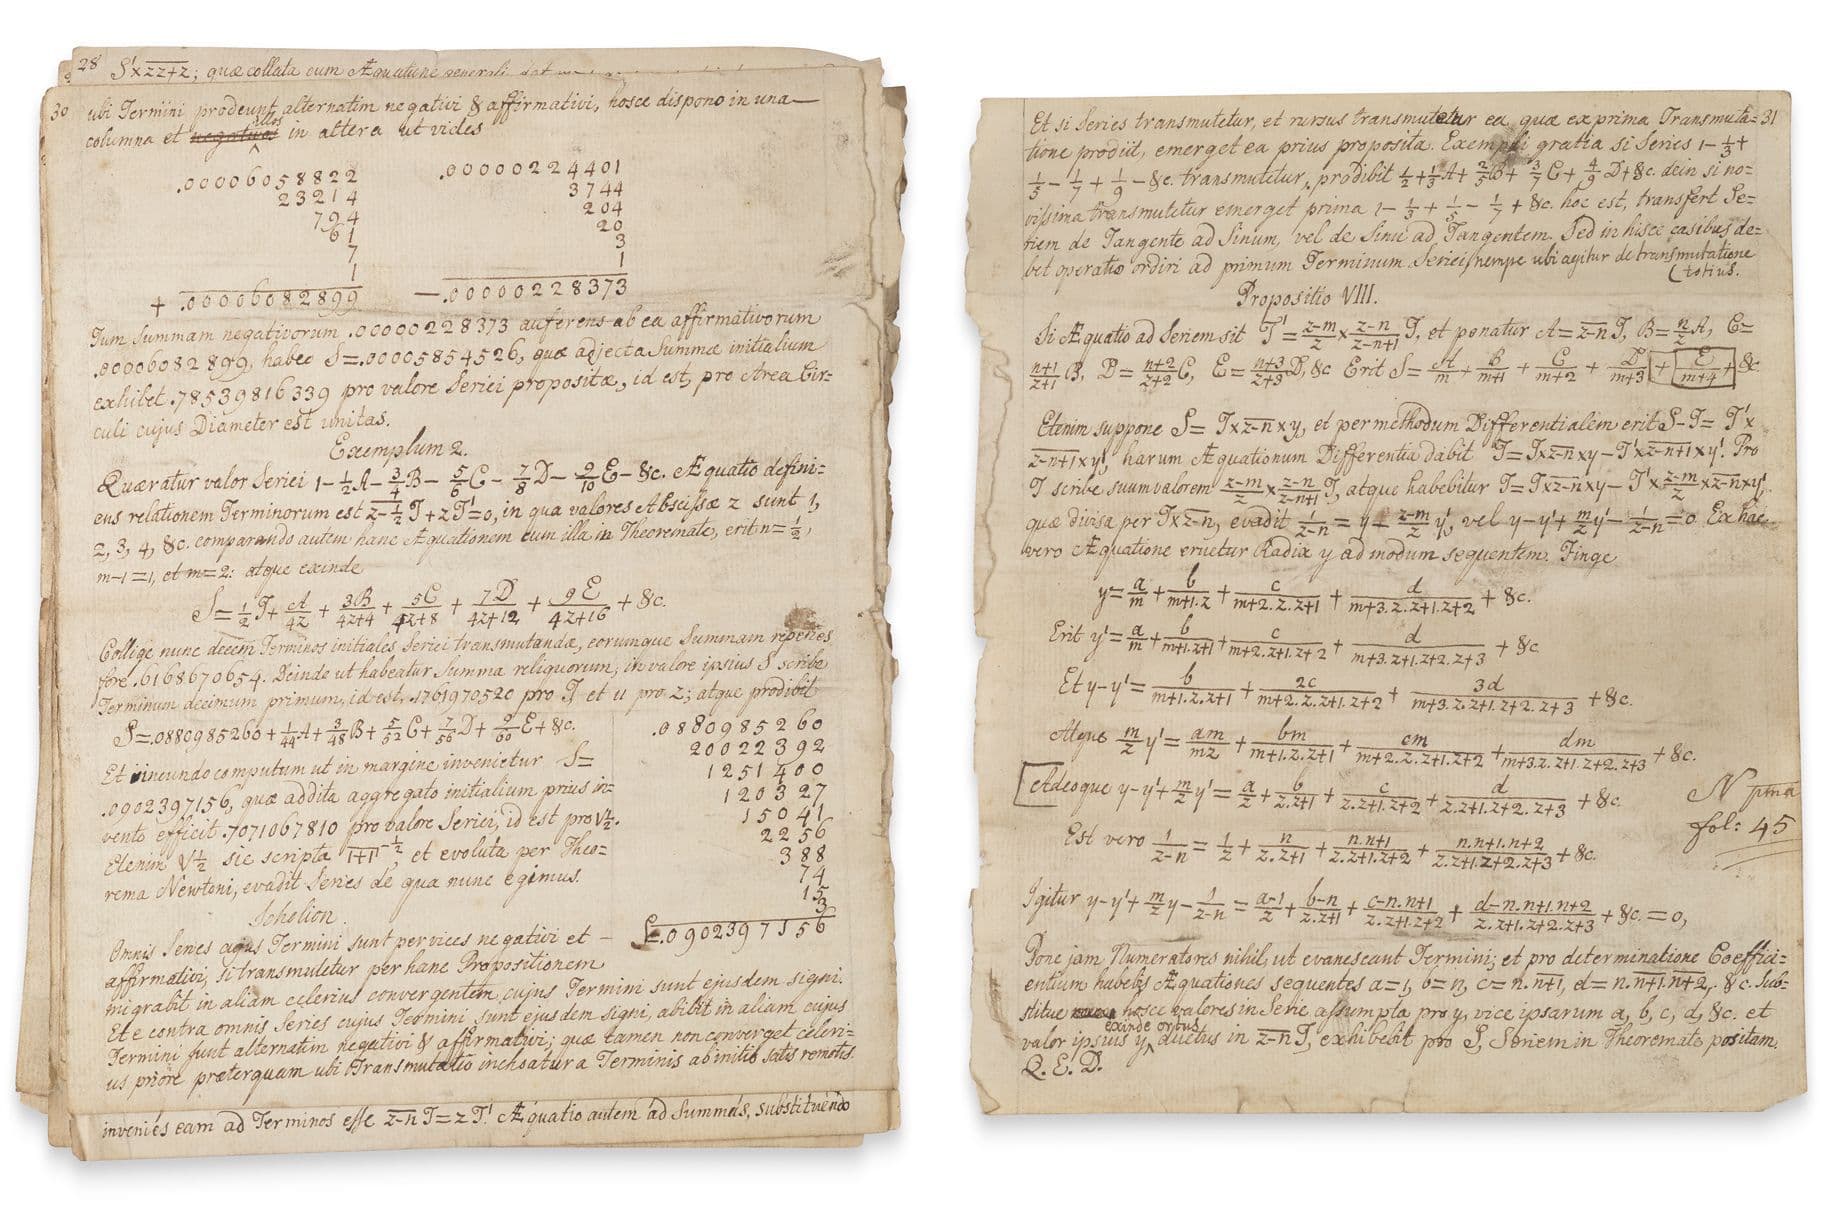 28 S'×zz+z; quæ collata cum Æquatione generali dat
30 ubi Termini prodeunt alternatim negativi & affirmativi, hosce dispono in una
columna et negativos illos in altera ut vides
.00006058822 .00000224401
23214 3744
794 204
61 20
7 3
1 1
+ .00006082899 — .00000228373
Tum Summam negativorum .00000228373 auferens ab ea affirmativorum
.00006082899, habeo S=.00005854526, quæ adjecta Summæ initialium
exhibet .78539816339 pro valore Seriei propositæ, id est, pro Area Cir=
culi cujus Diameter est unitas.
Exemplum 2.
Quæratur valor Seriei 1-1/2A-3/4B-5/6C-7/8D-9/10E-&c. Æquatio defini=
ens relationem Terminorum est z-1/2T+zT'=0, in qua valores Abscissæ z sunt 1,
2, 3, 4, &c. comparando autem hanc Æquationem cum illa in Theoremate, erit n=1/2,
m-1=1, et m=2: atque exinde
S=1/2T+A/4z+3B/4z+4+5C/4z+8+7D/4z+12+9E/4z+16+&c.
Collige nunc decem Terminos initiales Seriei transmutandæ, eorumque Summam reperies
fore .6168670654. Deinde ut habeatur Summa reliquorum, in valore ipsius S scribe
Terminum decimum primum, id est, .1761970520 pro T et 11 pro z; atque prodibit
S=.0880985260+1/44A+3/48B+5/52C+7/56D+9/60E+&c.
Et ineundo computum ut in margine invenietur S=
.0902397156, quæ addita aggregato initialium prius in=
vento efficit .7071067810 pro valore Seriei, id est pro √1/2.
Etenim √1/2 sic scripta 1+1^-1/2, et evoluta per Theo=
rema Newtoni, evadit Series de qua nunc egimus.
.0880985260
20022392
1251400
120327
15041
2256
388
74
15
3
S=.0902397156
Scholion.
Omnis Series cujus Termini sunt per vices negativi et
affirmativi, si transmutetur per hanc Propositionem
migrabit in aliam celerius convergentem, cujus Termini sunt ejusdem signi.
Et e contra omnis Series cujus Termini sunt ejusdem signi, abibit in aliam cujus
Termini sunt alternatim negativi & affirmativi; quæ tamen non converget celeri=
us priore præterquam ubi Transmutatio inchoatur a Terminis ab initio satis remotis.
invenies eam ad Terminos esse z-nT=zT'. Æquatio autem ad Summas, substituendo
Et si Series transmutetur, et rursus transmutetur ea quæ ex prima Transmuta= 31
tione prodiit, emerget ea prius proposita. Exempli gratia si Series 1-1/3+
1/5-1/7+1/9-&c. transmutetur, prodibit 1/2+1/3A+2/5B+3/7C+4/9D+&c. dein si no=
vissima transmutetur emerget prima 1-1/3+1/5-1/7+&c. hoc est, transfert Se=
riem de Tangente ad Sinum, vel de Sinu ad Tangentem. Sed in hisce casibus de=
bet operatio ordiri ad primum Terminum Seriei, nempe ubi agitur de transmutatione
totius.
Propositio VIII.
Si Æquatio ad Seriem sit T'=z-m/z×z-n/z-n+1T, et ponatur A=z-nT, B=n/zA, C=
n+1/z+1B, D=n+2/z+2C, E=n+3/z+3D, &c Erit S=A/m+B/m+1+C/m+2+D/m+3+E/m+4+&c
Etenim suppone S=T×z-n×y, et per methodum Differentialem erit S-T=T'×
z-n+1×y', harum Æquationum Differentia dabit T=T×z-n×y-T'×z-n+1×y'. Pro
T' scribe suum valorem z-m/z×z-n/z-n+1T, atque habebitur T=T×z-n×y-T×z-m/z×z-n×y'
quæ divisa per T×z-n, evadit 1/z-n=y-z-m/zy', vel y-y'+m/zy'-1/z-n=0. Ex hac
vero Æquatione eruetur Radix y ad modum sequentem. Finge
y=a/m+b/m+1.z+c/m+2.z.z+1+d/m+3.z.z+1.z+2+&c.
Erit y'=a/m+b/m+1.z+1+c/m+2.z+1.z+2+d/m+3.z+1.z+2.z+3+&c.
Et y-y'=b/m+1.z.z+1+2c/m+2.z.z+1.z+2+3d/m+3.z.z+1.z+2.z+3+&c.
Atque m/zy'=am/mz+bm/m+1.z.z+1+cm/m+2.z.z+1.z+2+dm/m+3.z.z+1.z+2.z+3+&c.
Adeoque y-y'+m/zy'=a/z+b/z.z+1+c/z.z+1.z+2+d/z.z+1.z+2.z+3+&c.
N pma
fol: 45
Est vero 1/z-n=1/z+n/z.z+1+n.n+1/z.z+1.z+2+n.n+1.n+2/z.z+1.z+2.z+3+&c.
Igitur y-y'+m/zy-1/z-n=a-1/z+b-n/z.z+1+c-n.n+1/z.z+1.z+2+d-n.n+1.n+2/z.z+1.z+2.z+3+&c.=0,
Pone jam Numeratores nihil, ut evanescant Termini; et pro determinatione Coeffici=
entium habebis Æquationes sequentes a=1, b=n, c=n.n+1, d=n.n+1.n+2, &c. Sub=
stitue hosce valores in Serie assumpta pro y, vice ipsarum a, b, c, d, &c. et
valor ipsius y exinde ortus ductus in z-nT, exhibebit pro S, Seriem in Theoremate positam.
Q. E. D.